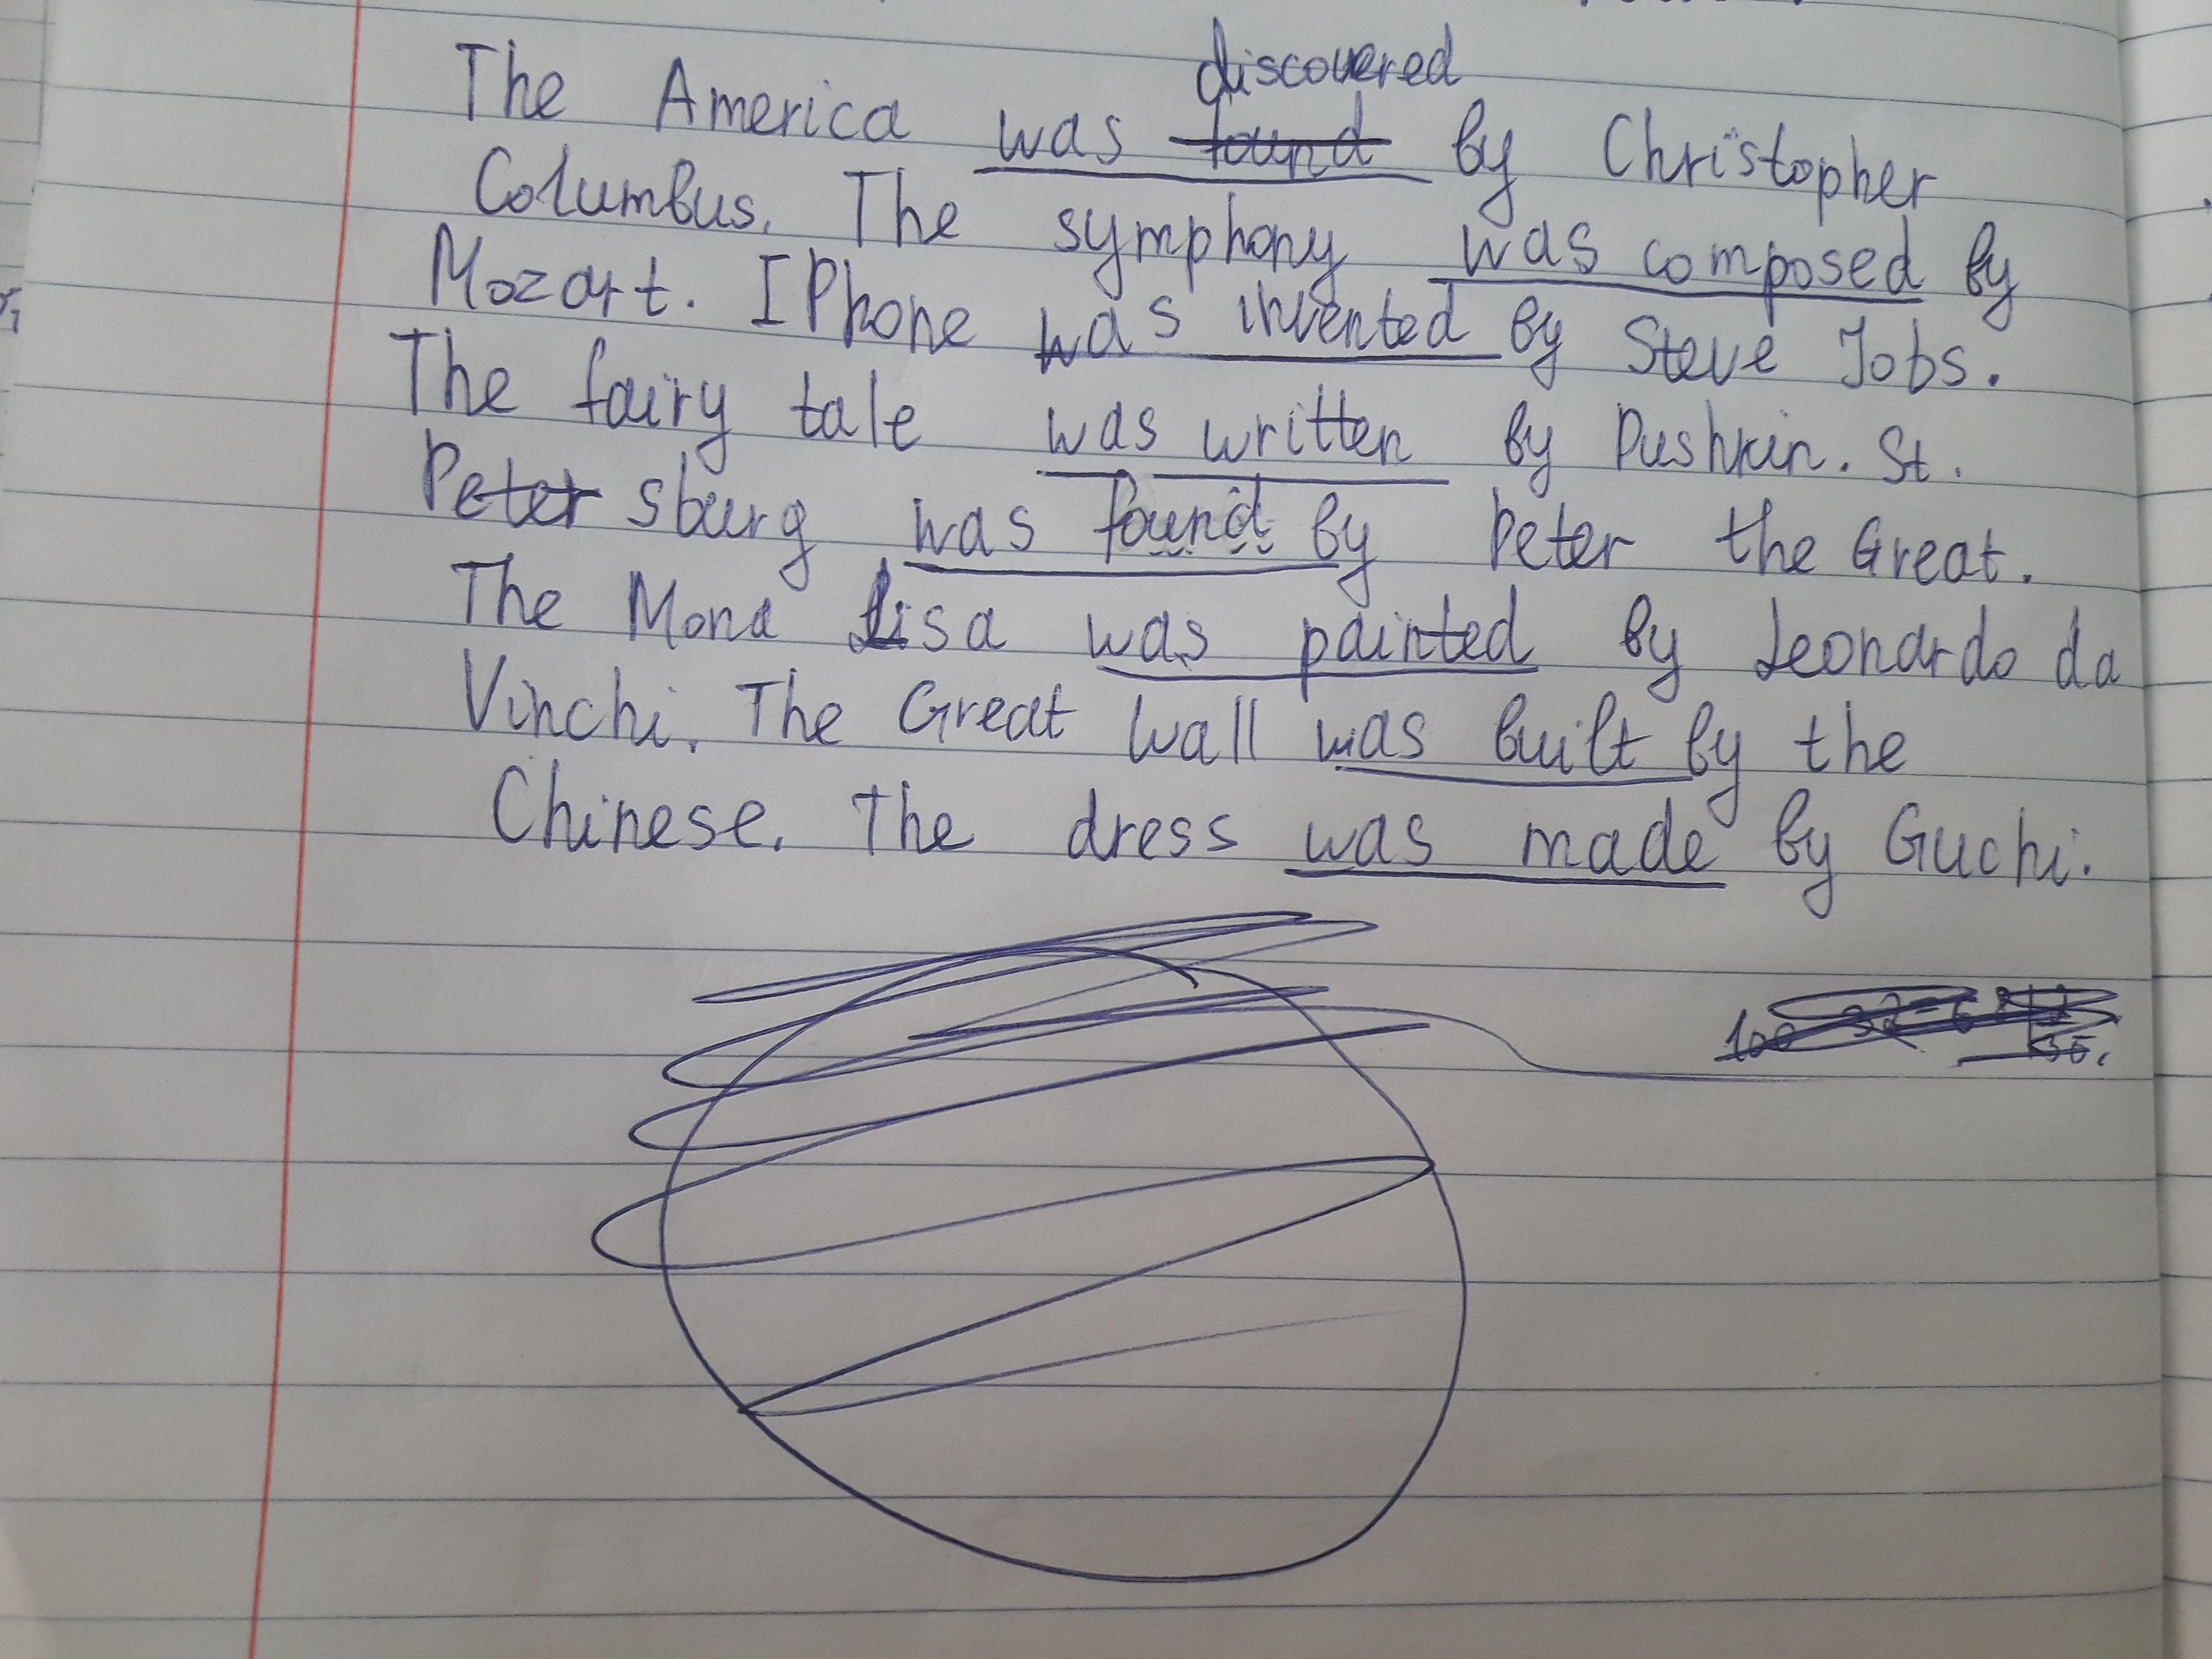 discovered
The America was found by Christopher
Columbus. The symphony was composed by
Mozart. IPhone was invented by Steve Jobs.
The fairy tale was written by Pushkin. St.
Petersburg was found by Peter the Great.
The Mona Lisa was painted by Leonardo da
Vinchi. The Great Wall was built by the
Chinese. The dress was made by Guchi.